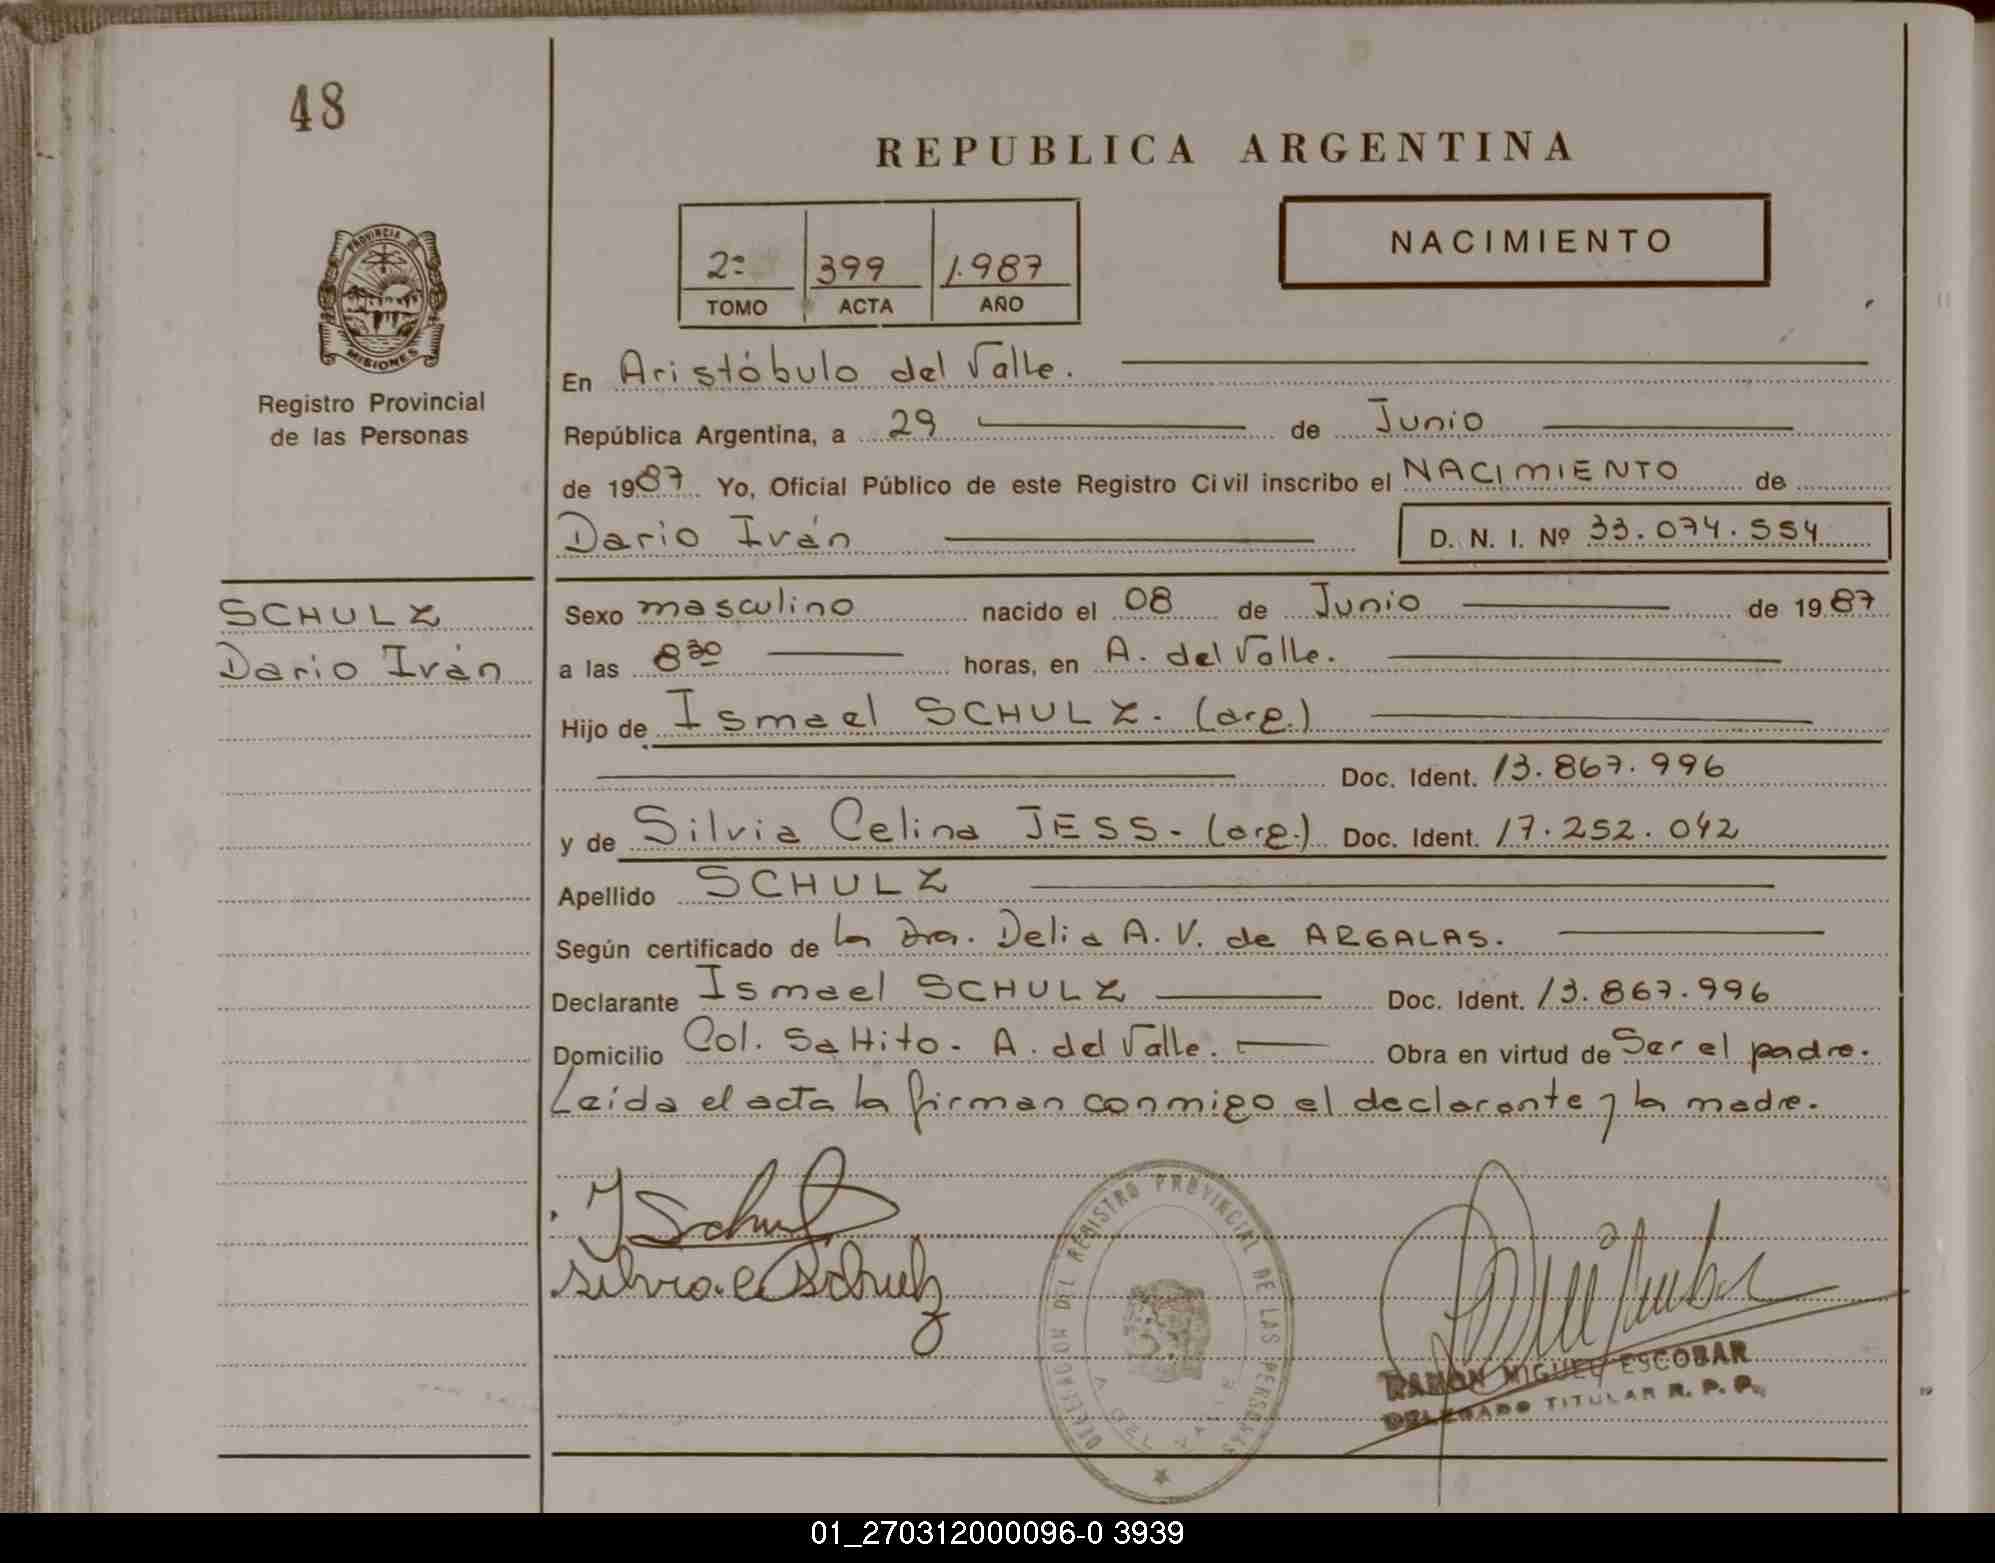 48
REPUBLICA ARGENTINA
PROVINCIA DE
MISIONES
Registro Provincial
de las Personas
2º 399 1.987
TOMO ACTA AÑO
NACIMIENTO
En Aristóbulo del Valle.
República Argentina, a 29 de Junio
de 1987 Yo, Oficial Público de este Registro Civil inscribo el NACIMIENTO de
Dario Iván D. N. I. Nº 33.074.554
SCHULZ
Dario Iván
Sexo masculino nacido el 08 de Junio de 1987
a las 8 30 horas, en A. del Valle.
Hijo de Ismael SCHULZ. (arg.)
Doc. Ident. 13.867.996
y de Silvia Celina JESS.- (arg.) Doc. Ident. 17.252.042
Apellido SCHULZ
Según certificado de la Dra. Delia A. V. de ARGALAS.
Declarante Ismael SCHULZ Doc. Ident. 13.867.996
Domicilio Col. Saltito. A. del Valle. Obra en virtud de Ser el padre.
Leída el acta la firman conmigo el declarante y la madre.
I Schulz
Silvia C Schulz
DELEGACION DEL REGISTRO PROVINCIAL DE LAS PERSONAS
A. DEL VALLE
RAMON MIGUEL ESCOBAR
DELEGADO TITULAR R. P. P.
01_270312000096-0 3939